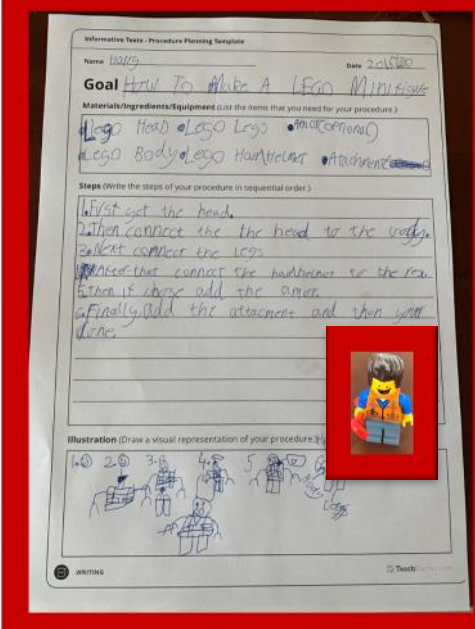 Informative Texts - Procedure Planning Template
Name Harry Date 20/5/20
Goal How To Make A LEGO Minifigure
Materials/Ingredients/Equipment (List the items that you need for your procedure.)
•Lego Head •Lego Legs •Amor(optional)
•Lego Body •Lego Hair/Helmet •Attachment
Steps (Write the steps of your procedure in sequential order.)
1.First get the head.
2.Then connect the the head to the body.
3.Next connect the legs
After that connect the hair/helmet to the
5.Then if chose add the amor.
6.Finally add the attacment and then your
done.
Illustration (Draw a visual representation of your procedure.)
1. 2. 3. 4. 5
WRITING
Teach